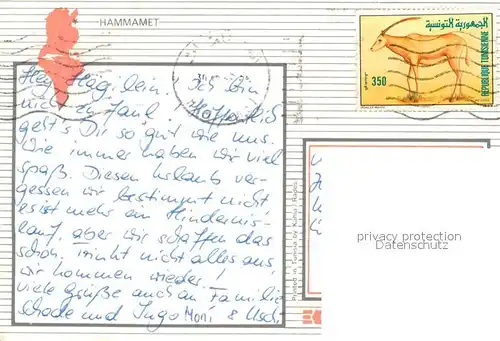 HAMMAMET
الجمهورية التونسية
350
REPUBLIQUE TUNISIENNE
Hey Häsilein. Ich bin
nicht zu Haus! Hoffentlich
geht's Dir so gut wie uns.
Wie immer haben wir viel
spaß. Diesen Urlaub ver-
gessen wir bestimmt nicht
es ist mehr ein Hindernis-
lauf, aber wir schaffen das
schon, trinkt nicht alles aus,
wir kommen wieder!
viele Grüße auch an Familie
und Ingo Moni & Usch.
privacy protection
Datenschutz